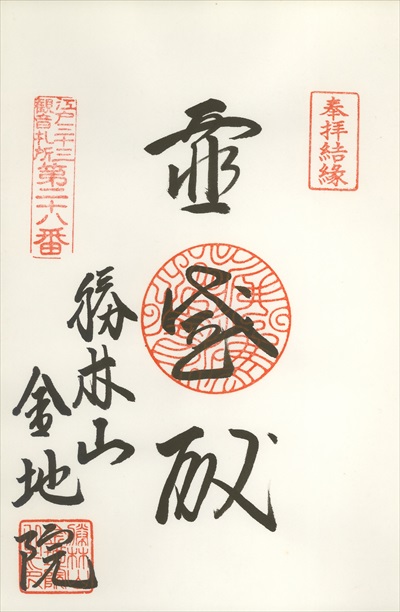 奉拝結縁
霊感殿
江戸三十三
観音札所
第二十八番
勝林山
金地院